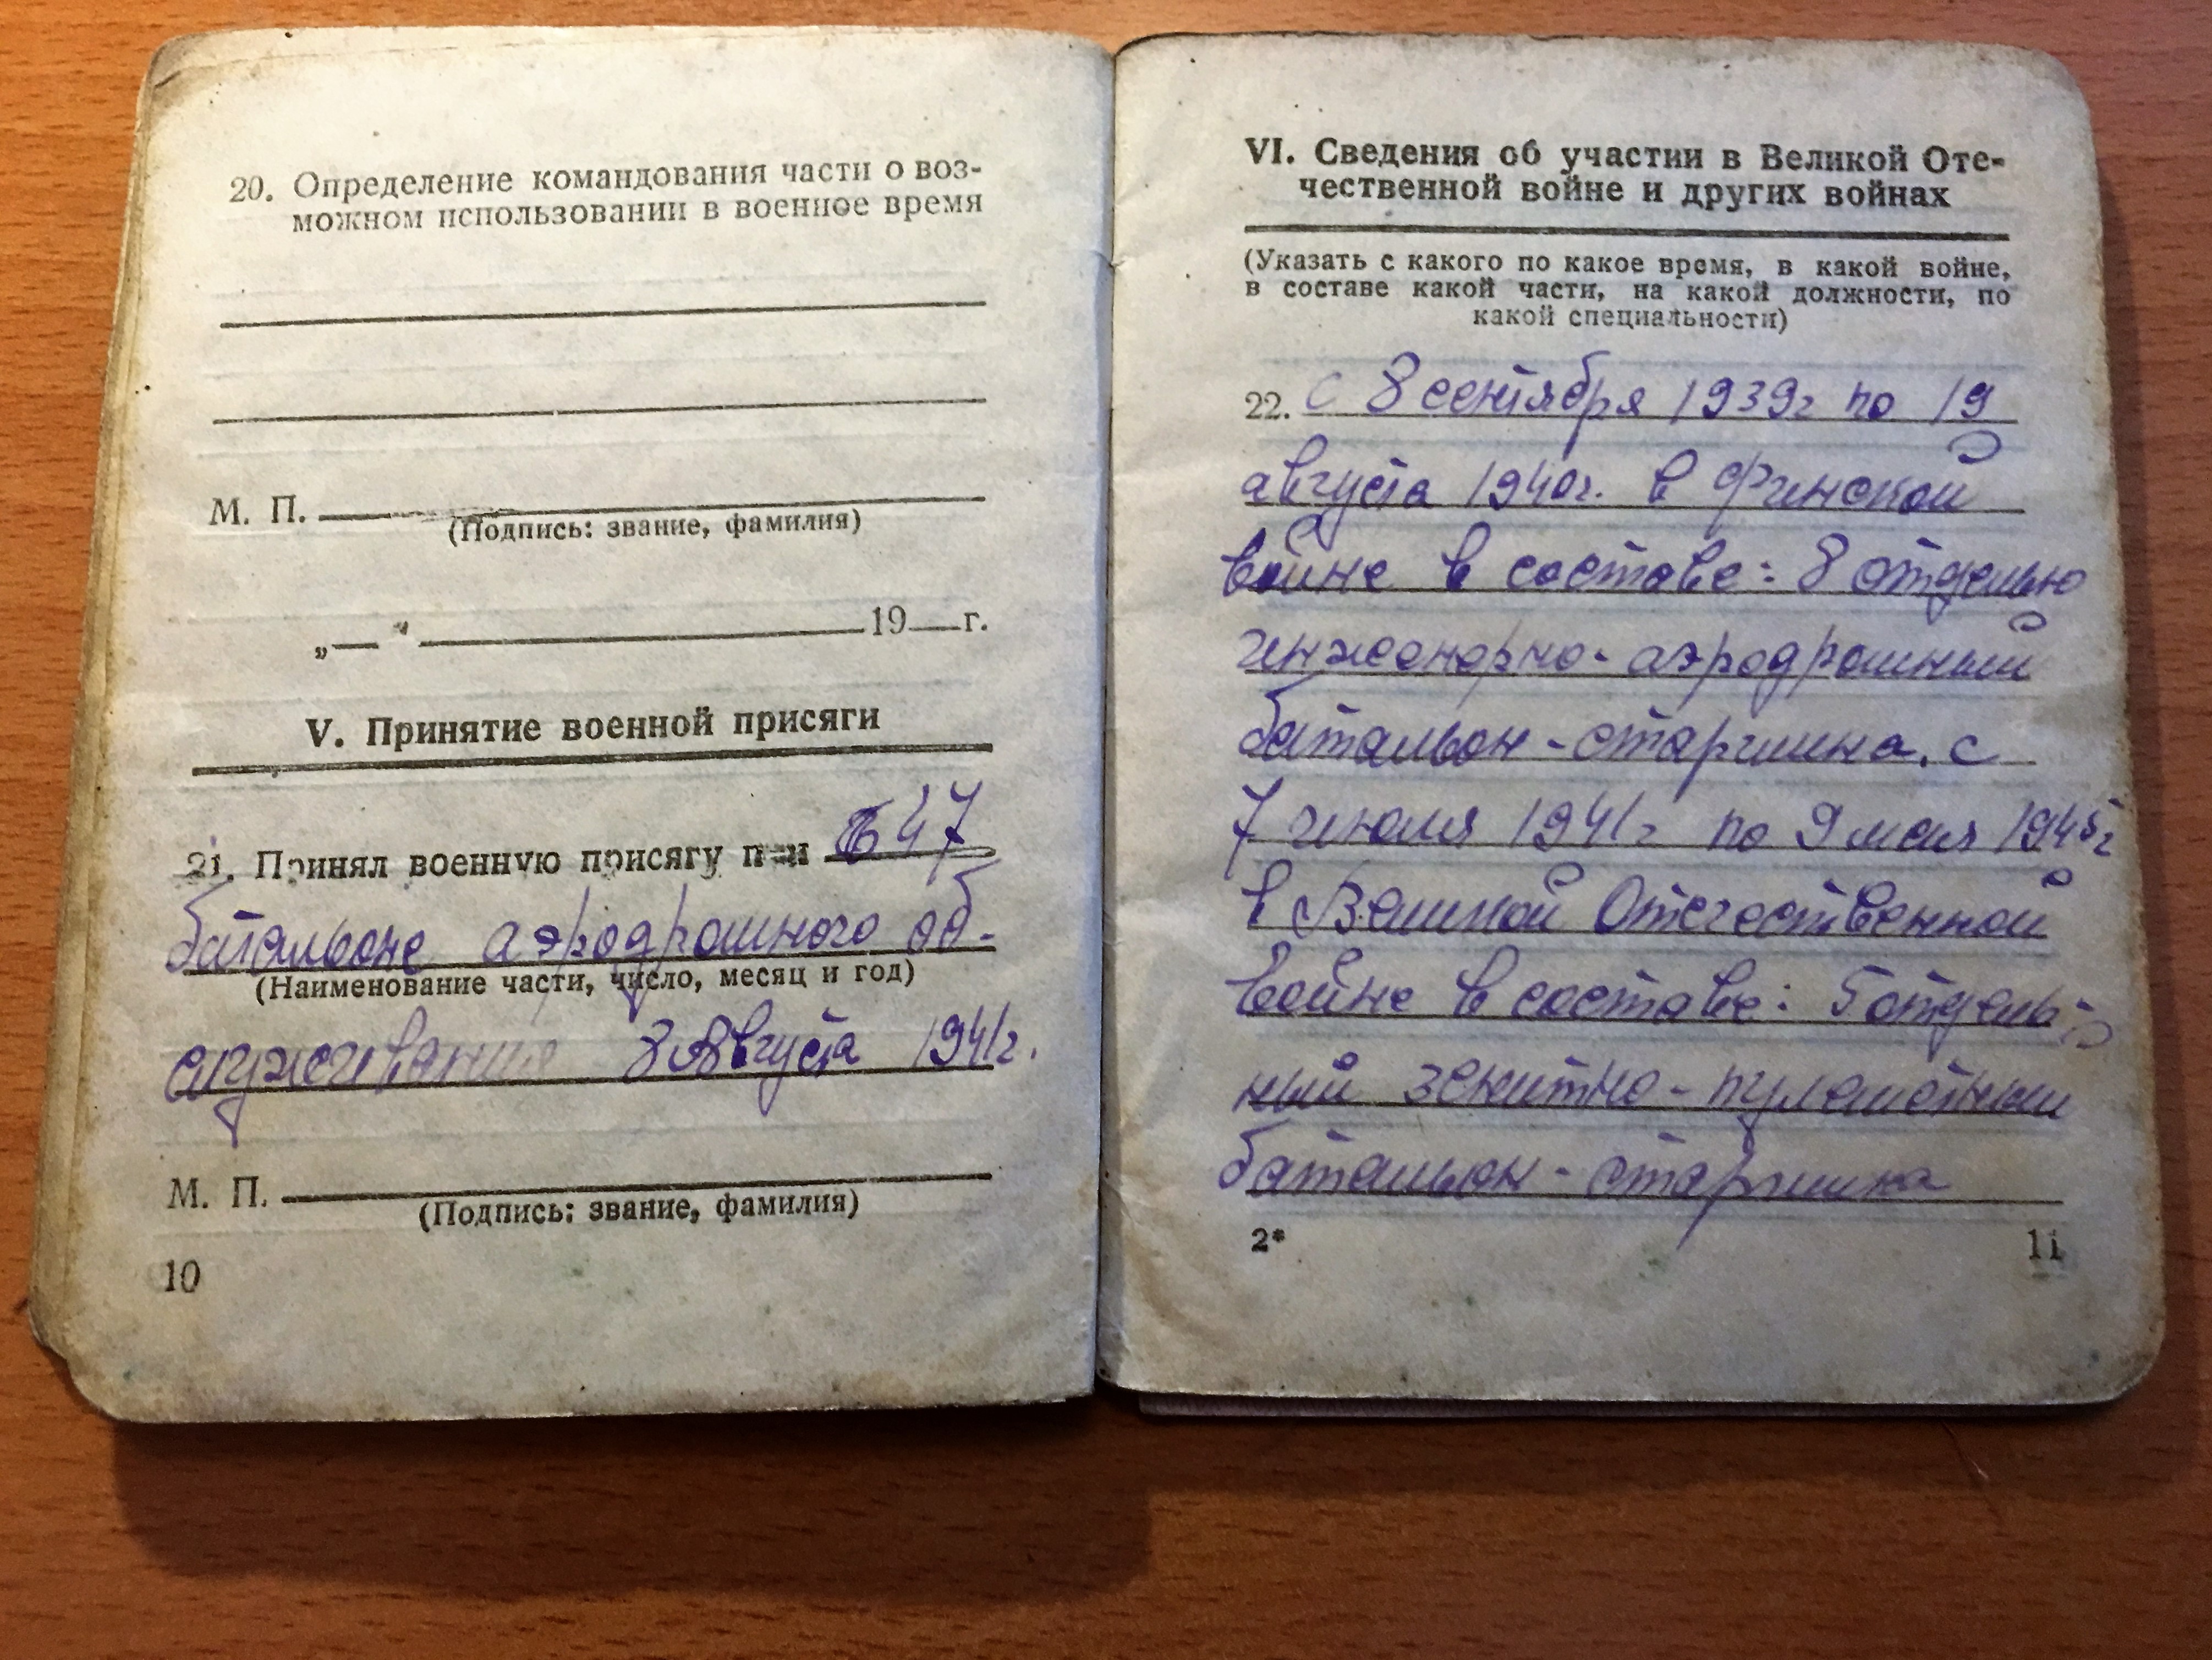 20. Определение командования части о воз-
можном использовании в военное время
М. П.
(Подпись: звание, фамилия)
„— “ 19 г.
V. Принятие военной присяги
21. Принял военную присягу при 647
батальоне аэродромного об-
(Наименование части, число, месяц и год)
служивания 8 Августа 1941г.
М. П.
(Подпись: звание, фамилия)
10
VI. Сведения об участии в Великой Оте-
чественной войне и других войнах
(Указать с какого по какое время, в какой войне,
в составе какой части, на какой должности, по
какой специальности)
22. С 8 сентября 1939г по 19
августа 1940г. в финской
войне в составе: 8 отдельно
инженерно-аэродромный
батальон - старшина. с
7 июля 1941г по 9 мая 1945г
в Великой Отечественной
войне в составе: 5 отдель-
ный зенитно-пулеметный
батальон - старшина
2* 11